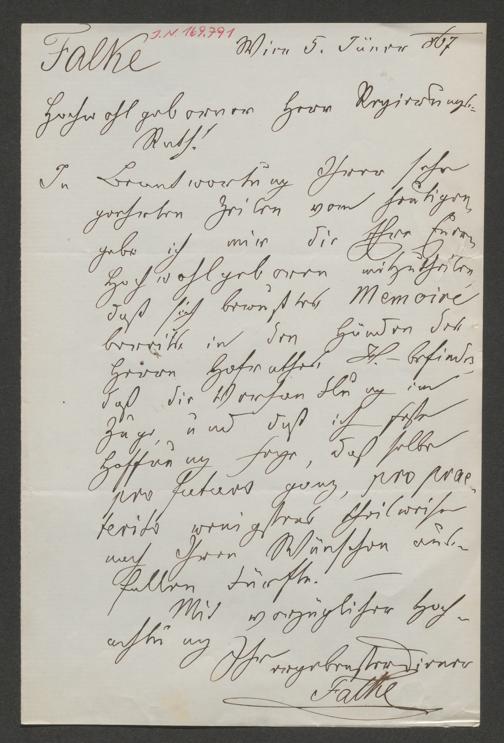 J.N. 169.791
Falke
Wien 5. Jäner 867
Hochwohlgeborner Herr Regierungs-
Rath!
In Beantwortung Ihrer sehr
geehrten Zeilen vom heutigen
gebe ich mir die Ehre Euren
Hochwohlgeboren mitzutheilen
daß sich bewußtes Memoire
bereits in den Händen des
Herrn Hofrathes H.- befindet,
daß die Verhandlung im
Zuge, und daß ich feste
Hoffnung hege, daß selbe
pro futuro ganz, pro prae-
terito wenigstens theilweise
nach Ihren Wünschen aus-
fallen dürfte. —
Mit vorzüglicher Hoch-
achtung
Ihr ergebenster Diener
Falke